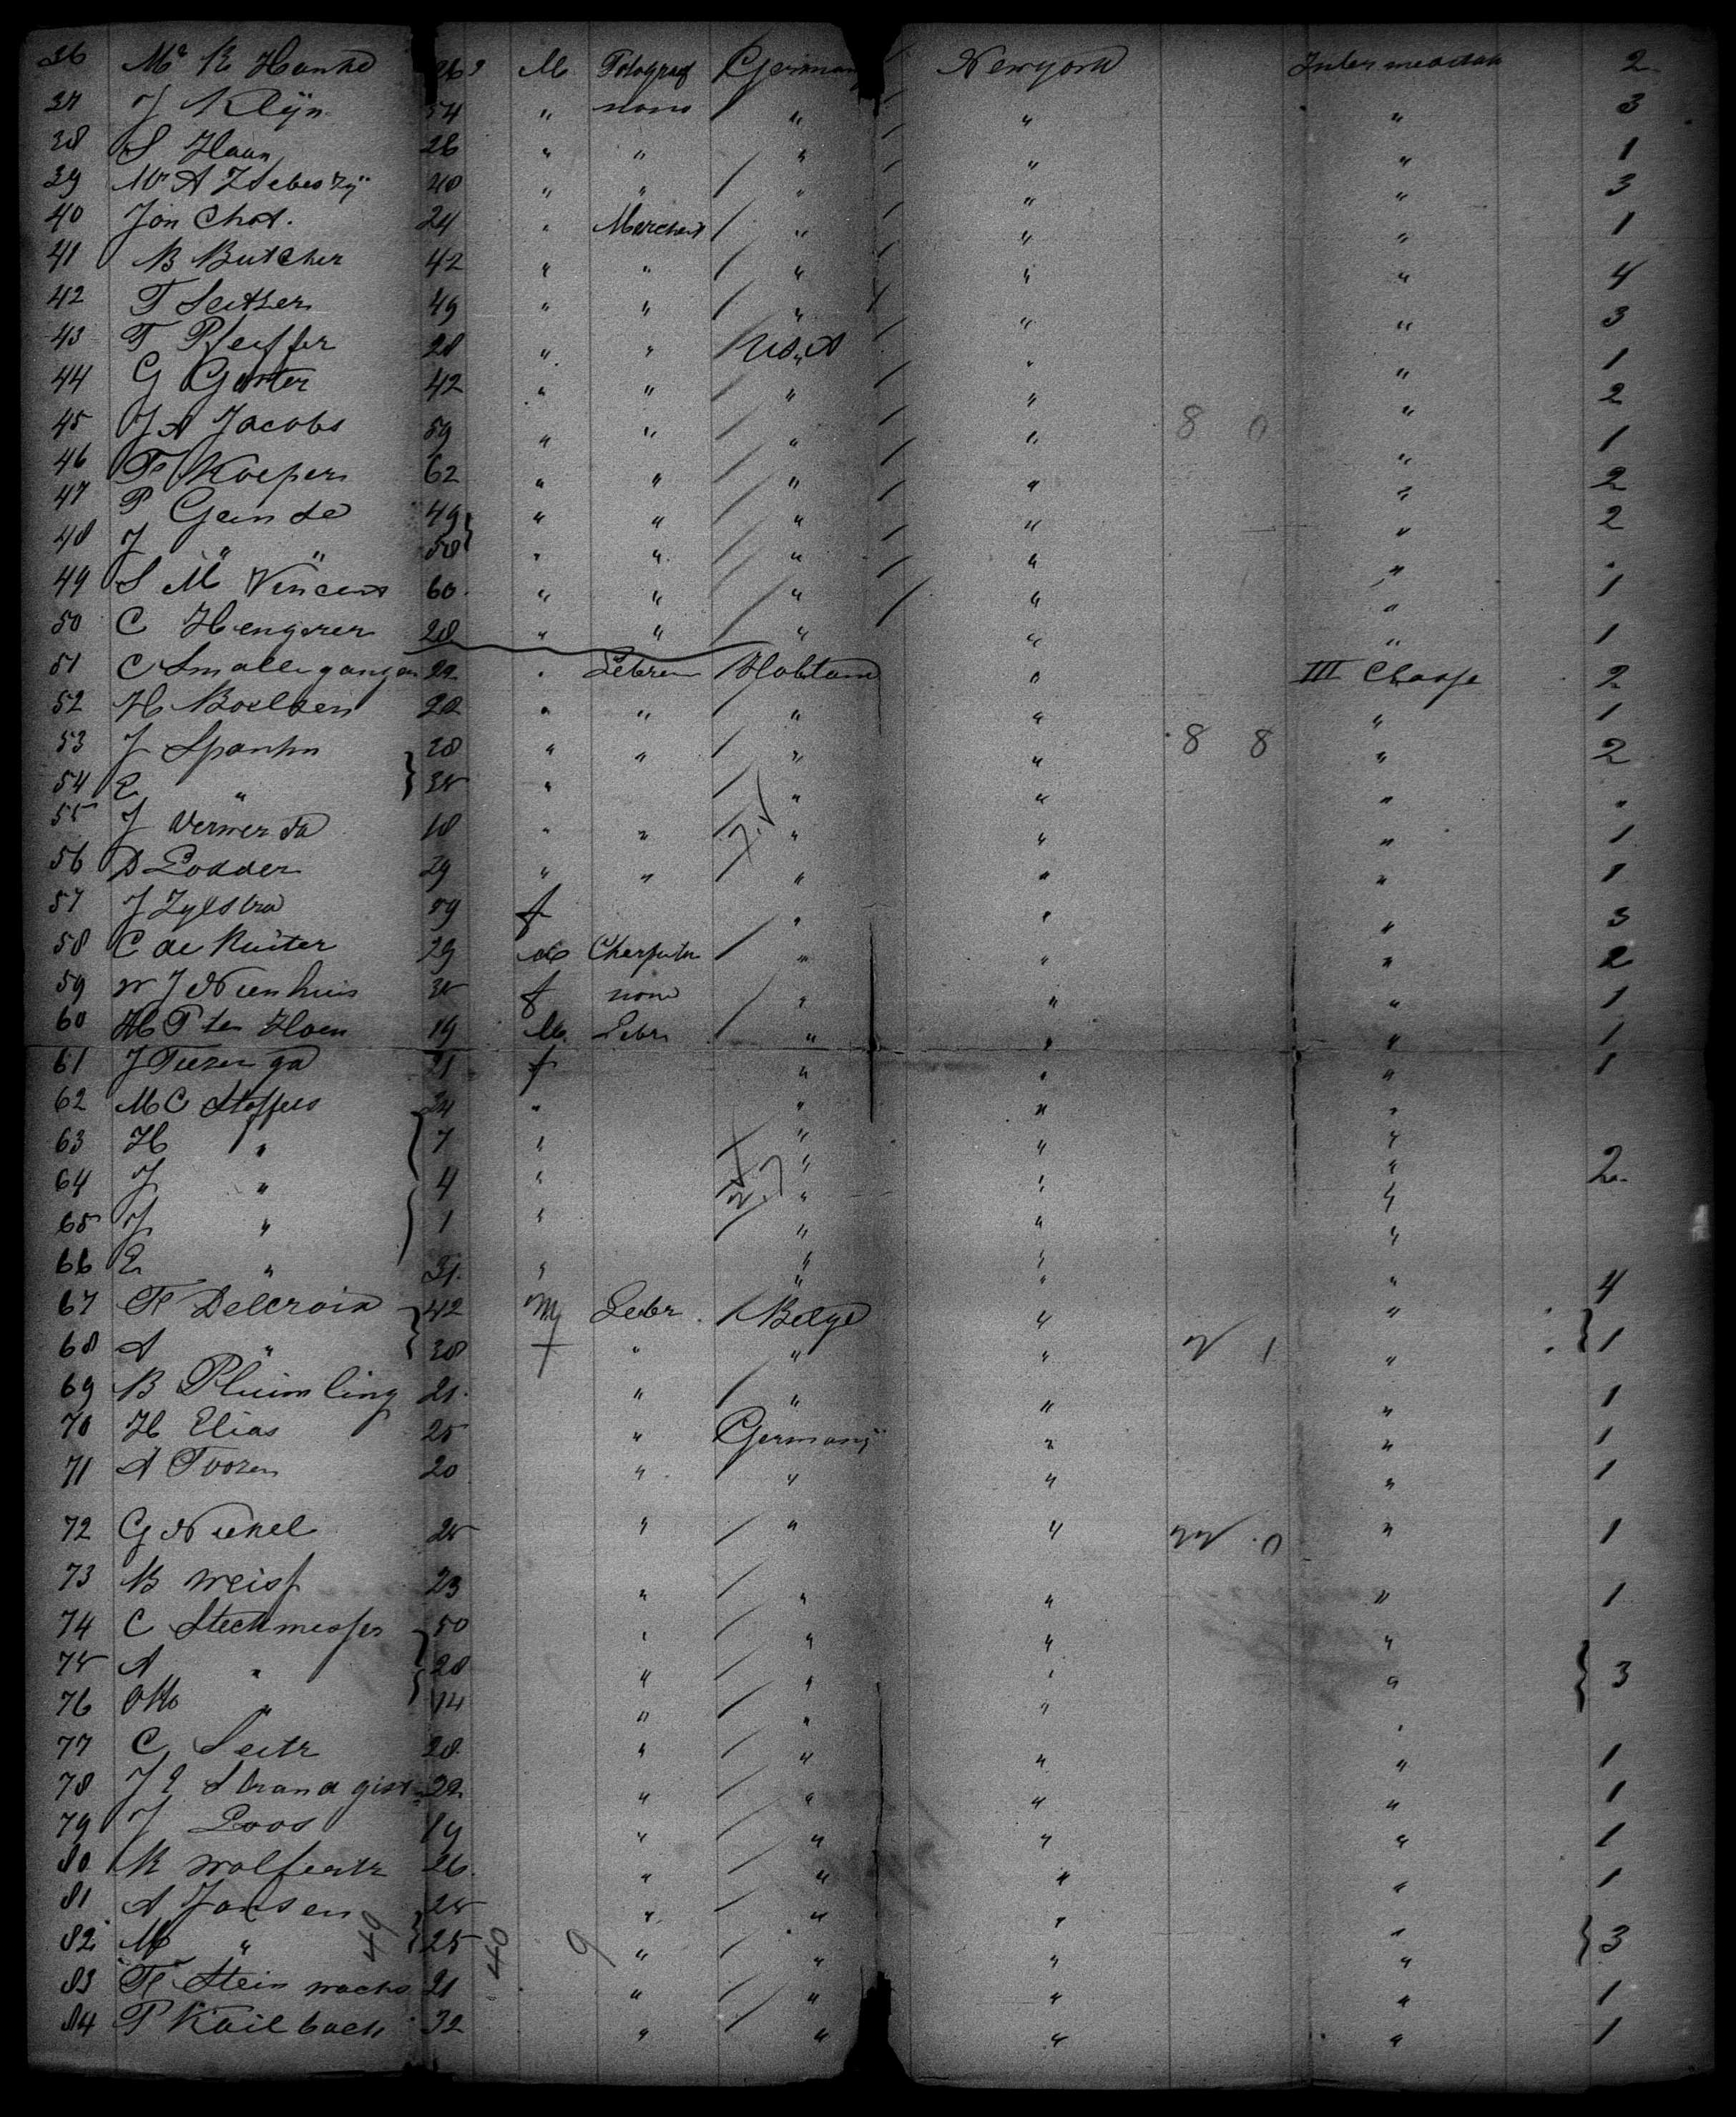 36 Mr R Hanke 26 M Fotograf Germany Newyork Intermediate 2
37 J Klÿn 54 " none " " " 3
38 S Haan 26 " " " " " 1
39 Mr A 40 " " " " " 3
40 Jon Chat. 24 " Merchent " " " 1
41 B Butcher 42 " " " " " 4
42 F Seitzer 49 " " " " " 3
43 F Pfeiffer 28 " " U.S.A " " 1
44 G Genter 42 " " " " " 2
45 J A Jacobs 59 " " " " 8 0 " 1
46 Fr Koepen 62 " " " " " 2
47 P Geinde 49 " " " " " 2
48 J " " 50 " " " " "
49 S M Vincent 60 " " " " " 1
50 C Hengerer 28 " " " " " 1
51 C Smallegangen 22 " Lebren Holland " III Classe 2
52 H Boelsen 22 " " " " " 1
53 J Spanhn 38 " " " " 8 8 " 2
54 E " 35 " " " " "
55 J Vermerda 18 " " " " " 1
56 D Lodder 29 " " " " " 1
57 J Zylstra 59 f " " " 3
58 C de Ruiter 29 M " " " 2
59 W J Nienhuis 35 f none " " " 1
60 H P ten Hoen 19 M. Lebr " " " 1
61 J Tuzenga 21 f " " " 1
62 M C Stoffers 24 " " " "
63 H " 7 " " " "
64 J " 4 " " " " 2
65 J " 1 " " " "
66 E " 31 " " " " 4
67 Fr Delcroix 42 M Lebr. Belge " "
68 A " 38 f " " " " 1
69 B Pluimling 21 " " " " 1
70 H Elias 25 " Germanÿ " " 1
71 A Tooren 20 " " " " 1
72 G Nickel 25 " " " " 1
73 B Weiss 23 " " " " 1
74 C Stechmesser 50 " " " "
75 A " 28 " " " " 3
76 Otto " 14 " " "
77 C Seitz 28 " " " " 1
78 J E Strandgist 22 " " " " 1
79 J Loos 19 " " " " 1
80 R Wolfertz 26 " " " " 1
81 A Jansen 25 " " " "
82 M " 25 " " " " 3
83 Fr Steinwachs 21 " " " " 1
84 P Kailbach 32 " " " " 1
49 40 9